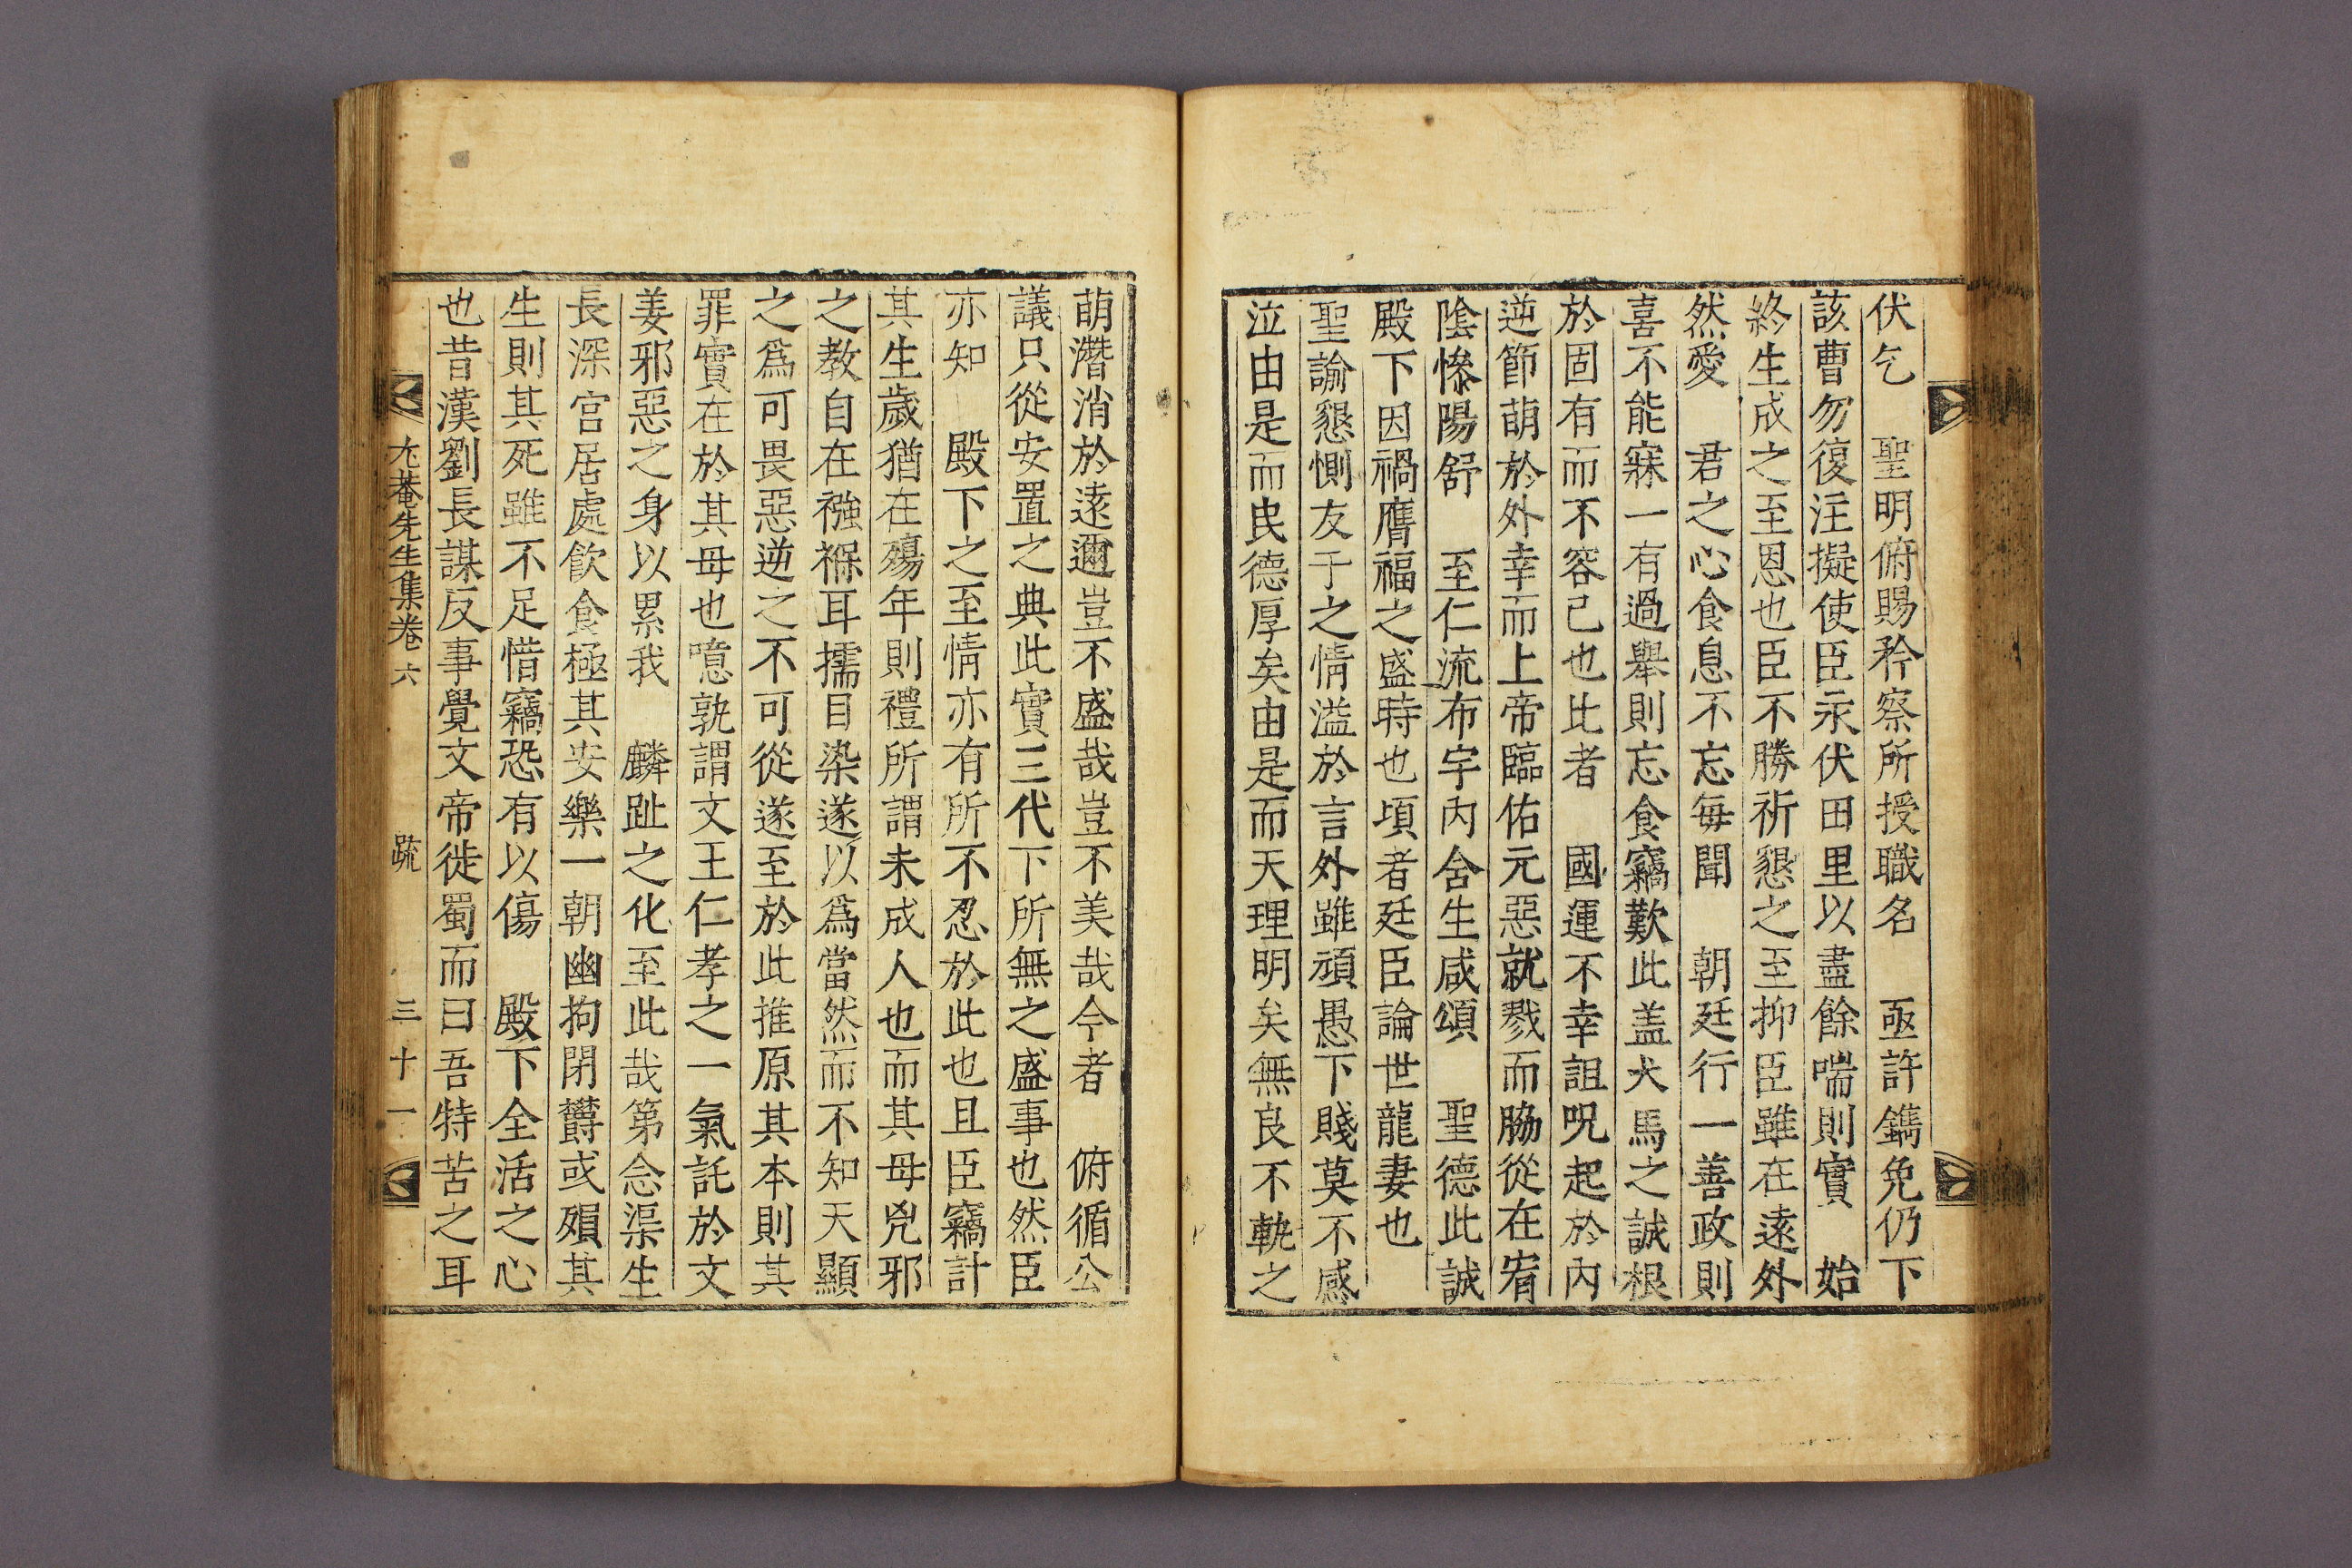 伏乞　聖明俯賜矜察所授職名　亟許鐫免仍下
該曹勿復注擬使臣永伏田里以盡餘喘則實　始
終生成之至恩也臣不勝祈懇之至抑臣雖在遠外
然愛　君之心食息不忘每聞　朝廷行一善政則
喜不能寐一有過擧則忘食竊歎此盖犬馬之誠根
於固有而不容已也比者　國運不幸詛呪起於內
逆節萌於外幸而上帝臨佑元惡就戮而脇從在宥
陰慘陽舒　至仁流布宇內含生咸頌　聖德此誠
殿下因禍膺福之盛時也頃者廷臣論世龍妻也
聖諭懇惻友于之情溢於言外雖頑愚下賤莫不感
泣由是而民德厚矣由是而天理明矣無良不軌之
萌潛消於遠邇豈不盛哉豈不美哉今者　俯循公
議只從安置之典此實三代下所無之盛事也然臣
亦知　殿下之至情亦有所不忍於此也且臣竊計
其生歲猶在殤年則禮所謂未成人也而其母兇邪
之教自在襁褓耳擩目染遂以爲當然而不知天顯
之爲可畏惡逆之不可從遂至於此推原其本則其
罪實在於其母也噫孰謂文王仁孝之一氣託於文
姜邪惡之身以累我　麟趾之化至此哉第念渠生
長深宮居處飮食極其安樂一朝幽拘閉欝或殞其
生則其死雖不足惜竊恐有以傷　殿下全活之心
也昔漢劉長謀反事覺文帝徙蜀而曰吾特苦之耳
尤菴先生集卷六　疏　三十一